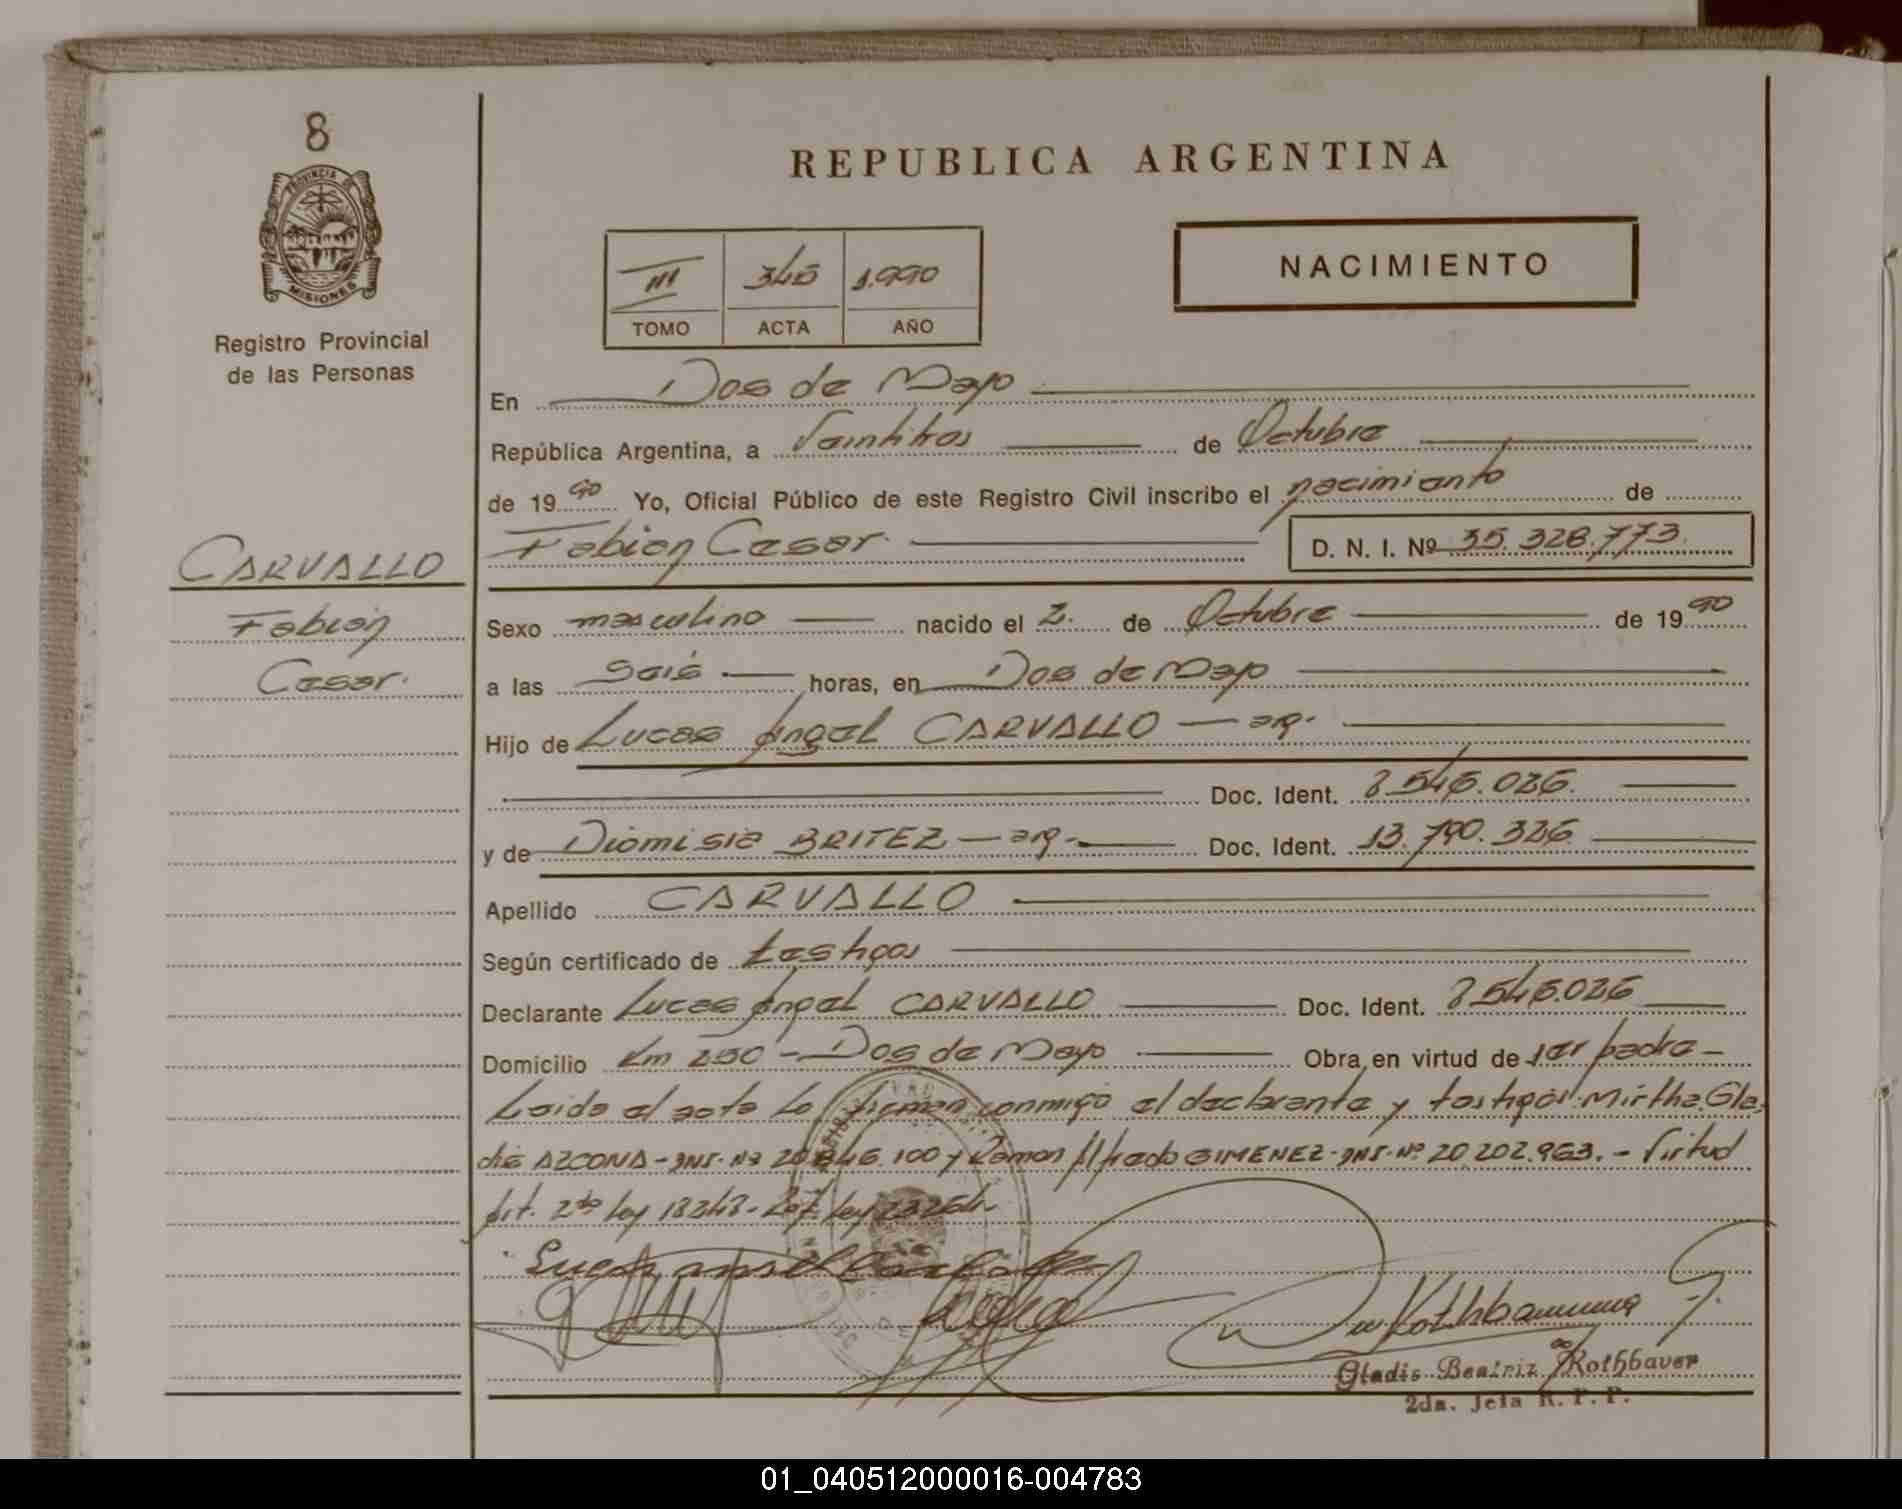 8
PROVINCIA DE
MISIONES
Registro Provincial
de las Personas
REPUBLICA ARGENTINA
NACIMIENTO
III 345 1.990
TOMO ACTA AÑO
En Dos de Mayo
República Argentina, a Veintitres de Octubre
de 1990 Yo, Oficial Público de este Registro Civil inscribo el nacimiento de
CARVALLO
Fabian Cesar. D. N. I. Nº 35.328.773.
Fabian
Cesar.
Sexo masculino nacido el 2. de Octubre de 1990
a las Seis horas, en Dos de Mayo
Hijo de Lucas Angel CARVALLO — arg.
Doc. Ident. 8.545.026.
y de Diomisia BRITEZ — arg. Doc. Ident. 13.790.326
Apellido CARVALLO
Según certificado de testigos
Declarante Lucas Angel CARVALLO Doc. Ident. 8545.026
Domicilio Km 250 - Dos de Mayo Obra en virtud de ser padre -
Leido el acta Lo firman conmigo el declarante y testigos: Mirtha Gla-
dis AZCONA - DNI. Nº 100 y Ramon Alfredo GIMENEZ - DNI. Nº 20.202.963. - Virtud
Art. 2do ley 18248 - ley 23264
Gladis Beatriz Rothbaver
2da. Jefa R. P. P.
01_040512000016-004783